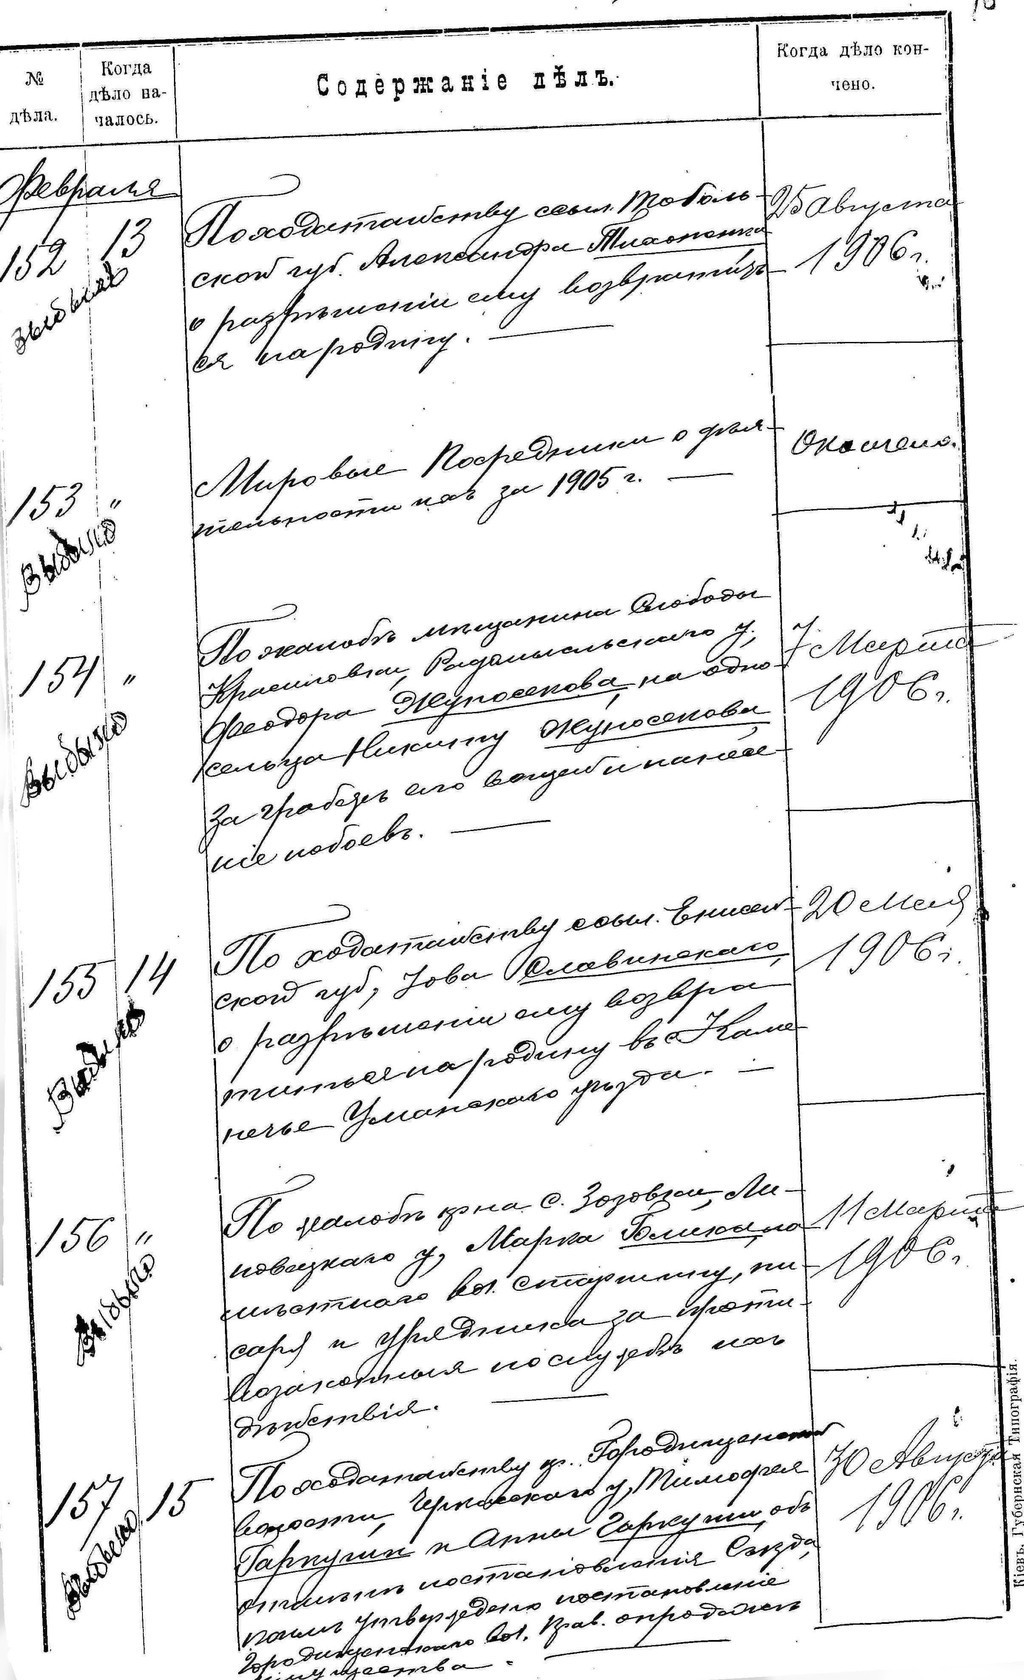 № дѣла.
Когда дѣло на-
чалось.
Содержаніе дѣлъ.
Когда дѣло кон-
чено.
Февраля
152 13
выбыло
По ходатайству ссыл. Тоболь-
ской губ. Александра
о разрѣшеніи ему возвратить
ся на родину. —
25 Августа
1906 г.
153 "
Выбыло
Мировые Посредники о дѣя-
тельности ихъ за 1905 г. —
Окончено.
154 "
Выбыло
По жалобѣ мѣщанина Слободы
Радомысльскаго у,
Феодора Жуносенкова, на одно-
сельца Никиту Жуносенкова
за грабежъ его вещей и нанесе
ніе побоевъ. —
7 Марта
1906 г.
155 14
Выбыло
По ходатайству ссыл. Енисей-
ской губ, Іова Славинскаго,
о разрѣшеніи ему возвра
титься на родину въ с. Каме
нечье Уманскаго уѣзда. —
20 Мая
1906 г.
156 "
Выбыло
По жалобѣ кр-на с. Зозовки, Ли-
повецкаго у, Марка на
мѣстнаго вол. старшину, пи-
саря и урядника за проти-
возаконныя по службѣ ихъ
дѣйствія. —
11 Марта
1906 г.
157 15
Выбыло
По ходатайству кр. Городищенской
волости, Черкасскаго у, Тимофея
Гаркуши и Анны Гаркуши, объ
отмѣнѣ постановленія Съѣзда,
коимъ утверждено постановленіе
Городищенскаго вол. Прав. о продажѣ
имущества. —
30 Августа
1906 г.
Кіевъ, Губернская Типографія.